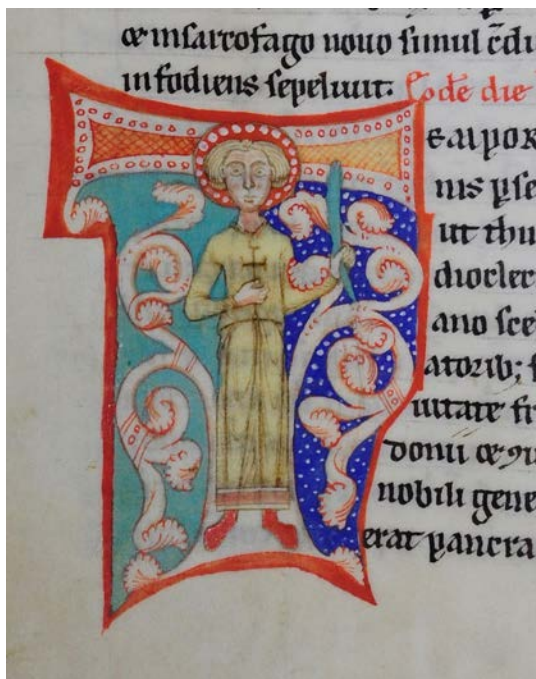 in sarcofago nouo simul c̄di
infodiens sepeliuit. Eodē die
T empor
ut
dioclet
ano sce
atorib;
iuitate fr
donii
nobili gene
erat pancra